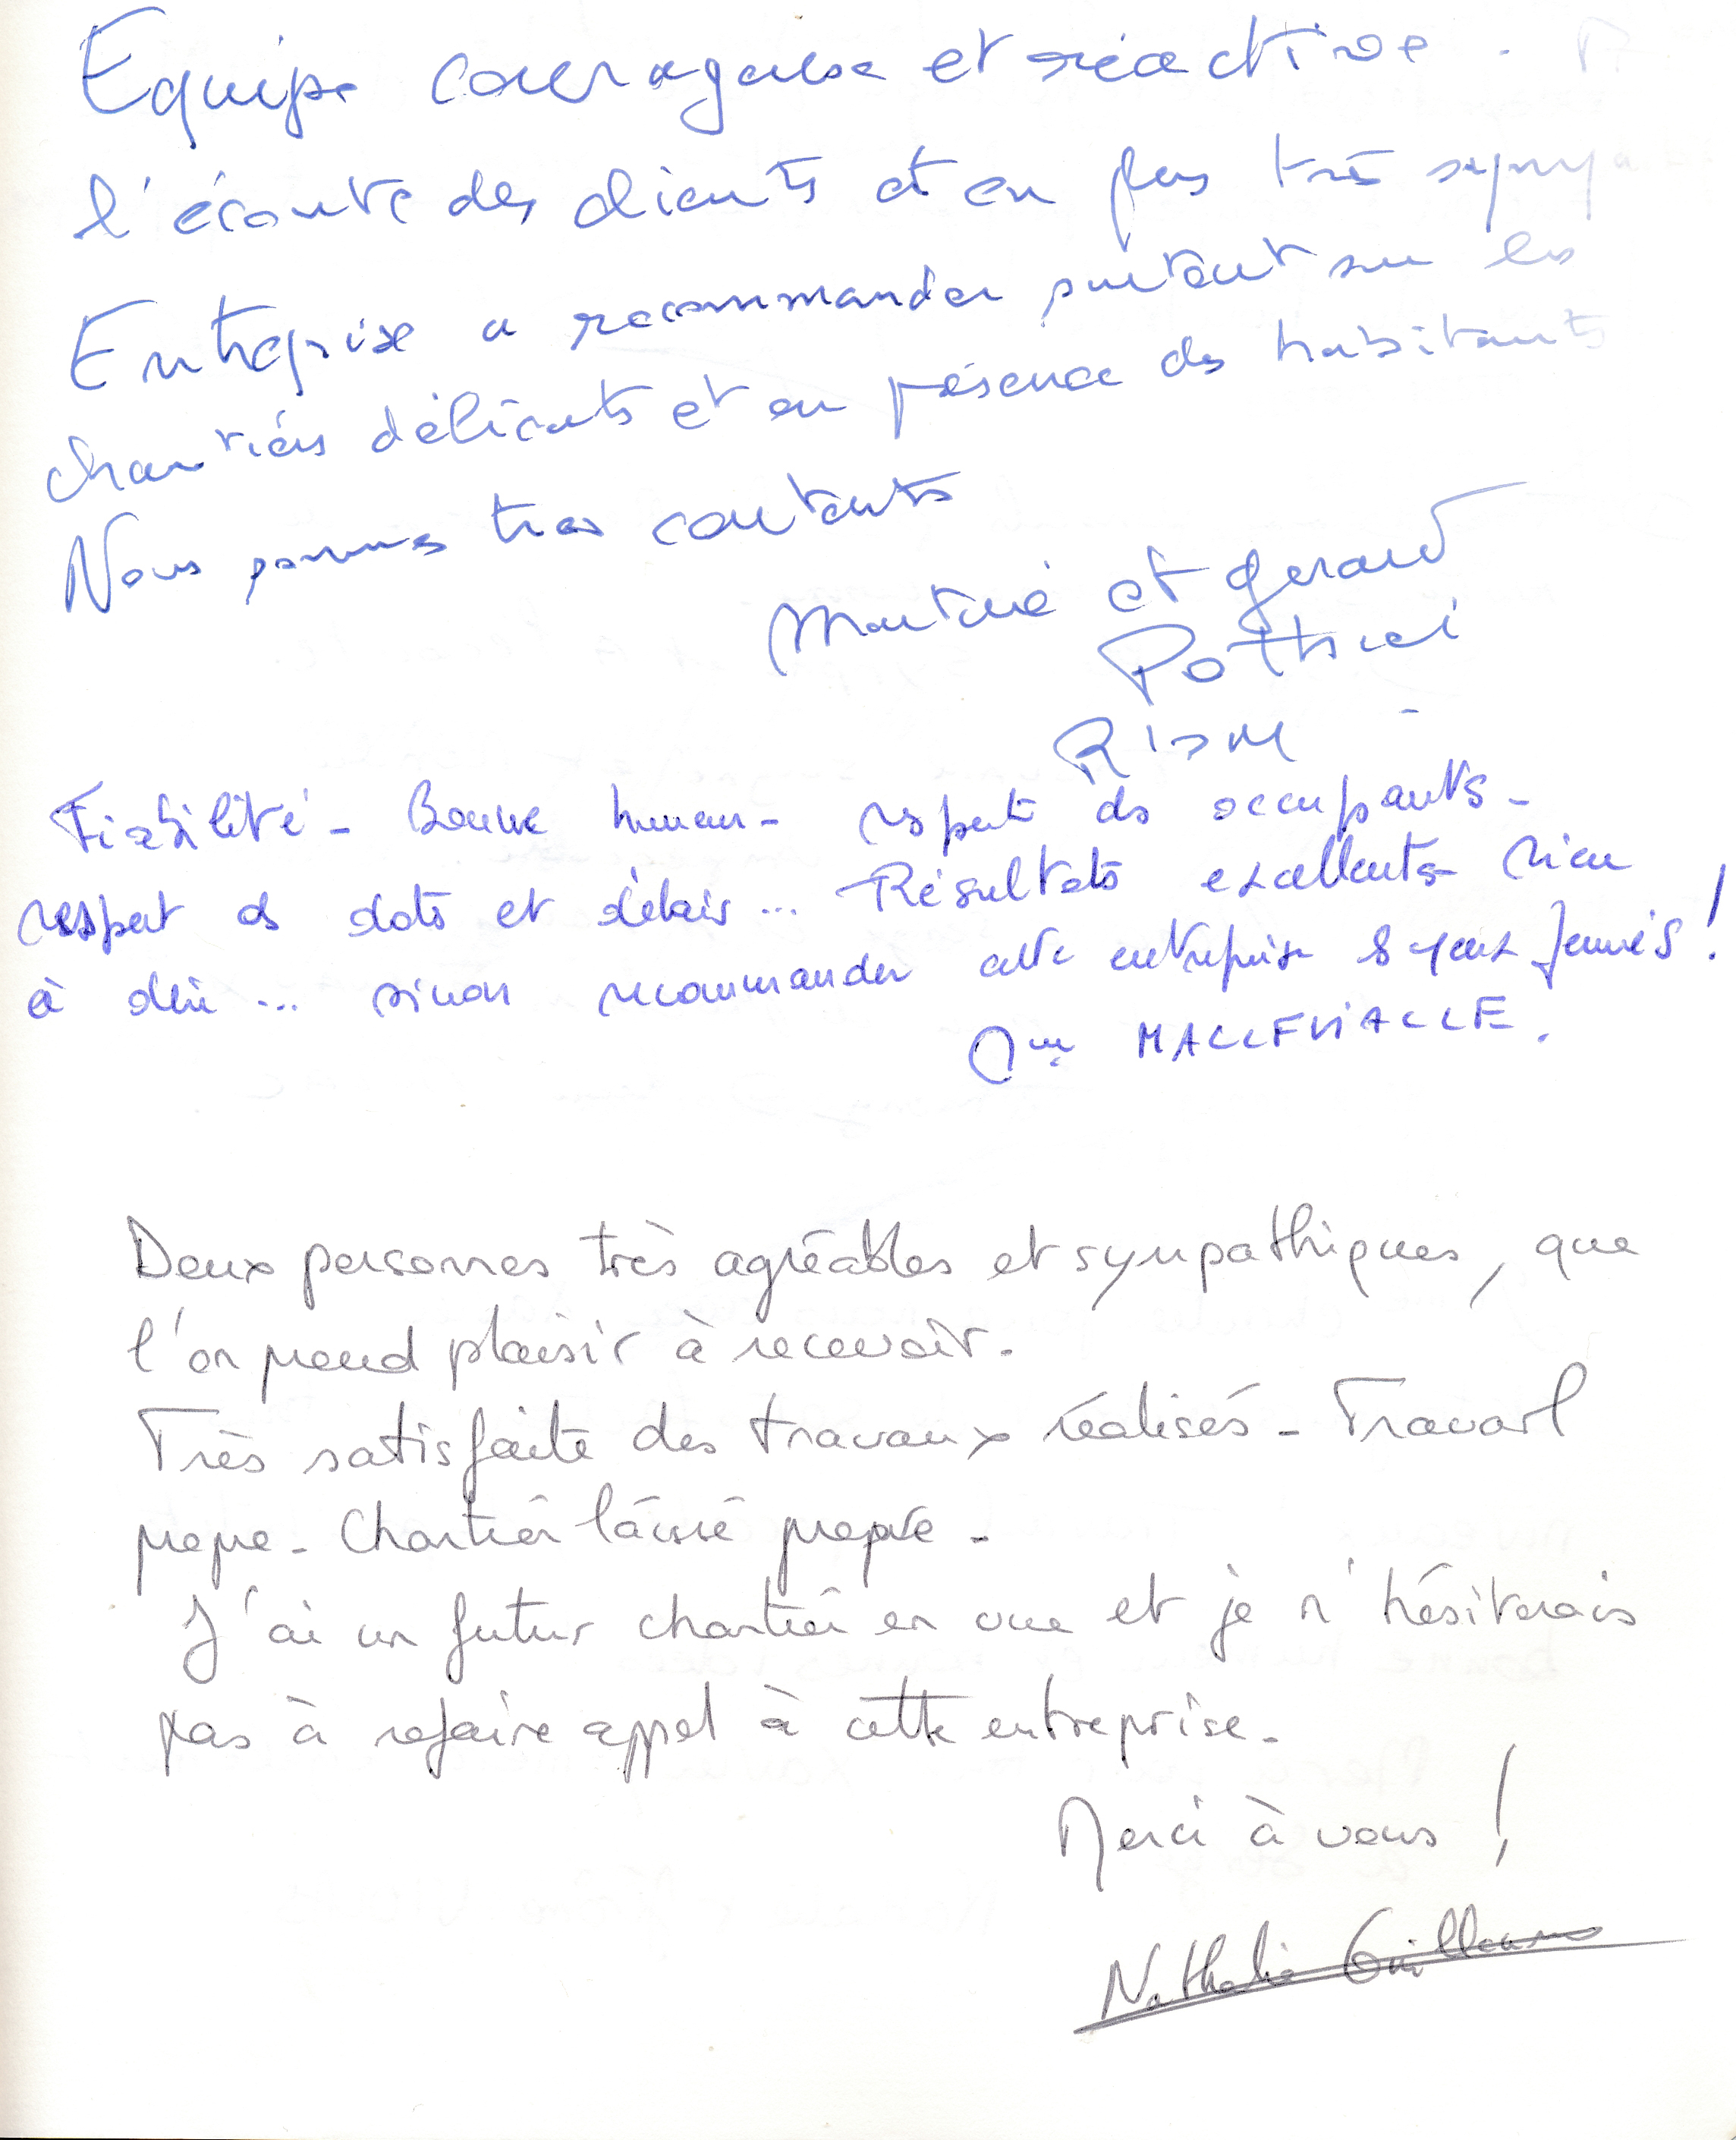 Equipe courageuse et réactive.
l'écoute des clients et en plus très sympa
Entreprise a recommander surtout sur les
chantiers délicats et en présence des habitants
Nous sommes tres contents
Martine et Gerard
RIOM
Fiabilité - Bonne humeur - respect des occupants -
respect des dates et délais... Résultats excellents rien
à dire... sinon recommander cette entreprise les yeux fermés !
Mme MALLEVIALLE.
Deux personnes très agréables et sympathiques, que
l'on prend plaisir à recevoir.
Très satisfaite des travaux réalisés - Travail
propre - Chantier laissé propre -
J'ai un futur chantier en vue et je n'hésiterais
pas à refaire appel à cette entreprise -
Merci à vous !
Nathalie Guillaume